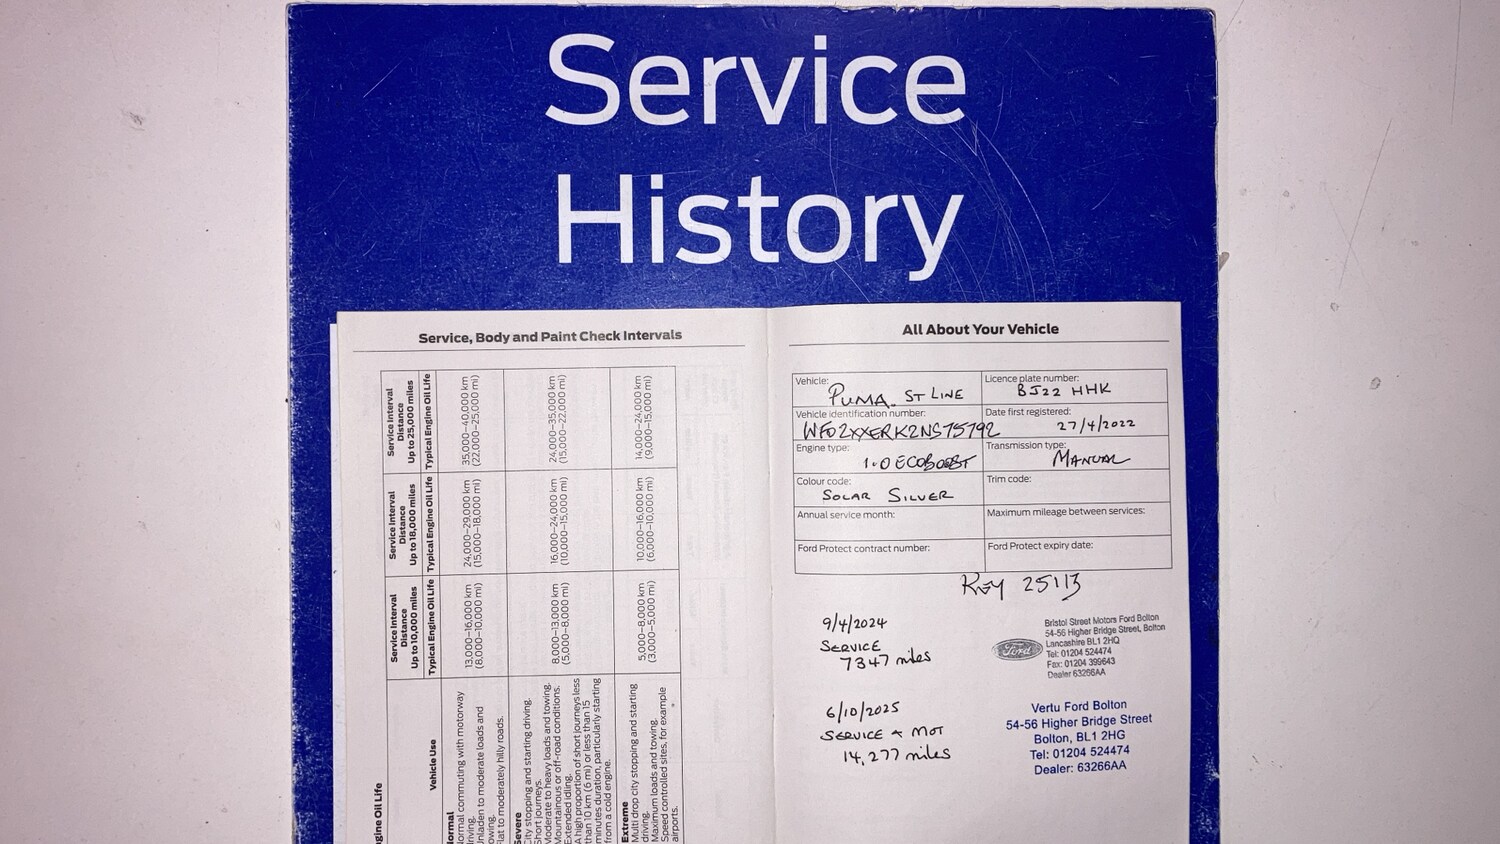 Service
History
Service, Body and Paint Check Intervals
Service Interval
Distance
Up to 10,000 miles
Service Interval
Distance
Up to 18,000 miles
Service Interval
Distance
Up to 25,000 miles
Engine Oil Life
Vehicle Use
Typical Engine Oil Life
Typical Engine Oil Life
Typical Engine Oil Life
Normal
Normal commuting with motorway
driving.
Unladen to moderate loads and
towing.
Flat to moderately hilly roads.
13,000–16,000 km
(8,000–10,000 mi)
24,000–29,000 km
(15,000–18,000 mi)
35,000–40,000 km
(22,000–25,000 mi)
Severe
City stopping and starting driving.
Short journeys.
Moderate to heavy loads and towing.
Mountainous or off-road conditions.
Extended idling.
A high proportion of short journeys less
than 10 km (6 mi) or less than 15
minutes duration, particularly starting
from a cold engine.
8,000–13,000 km
(5,000–8,000 mi)
16,000–24,000 km
(10,000–15,000 mi)
24,000–35,000 km
(15,000–22,000 mi)
Extreme
Multi drop city stopping and starting
driving.
Maximum loads and towing.
Speed controlled sites, for example
airports.
5,000–8,000 km
(3,000–5,000 mi)
10,000–16,000 km
(6,000–10,000 mi)
14,000–24,000 km
(9,000–15,000 mi)
All About Your Vehicle
Vehicle: PUMA ST LINE
Licence plate number: BJ22 HHK
Vehicle identification number: WF02XXERK2NS75792
Date first registered: 27/4/2022
Engine type: 1.0 ECOBOOST
Transmission type: MANUAL
Colour code: SOLAR SILVER
Trim code:
Annual service month:
Maximum mileage between services:
Ford Protect contract number:
Ford Protect expiry date:
KEY 25113
9/4/2024
SERVICE
7347 miles
Ford
Bristol Street Motors Ford Bolton
54-56 Higher Bridge Street, Bolton
Lancashire BL1 2HQ
Tel: 01204 524474
Fax: 01204 399643
Dealer 63266AA
6/10/2025
SERVICE & MOT
14,277 miles
Vertu Ford Bolton
54-56 Higher Bridge Street
Bolton, BL1 2HG
Tel: 01204 524474
Dealer: 63266AA